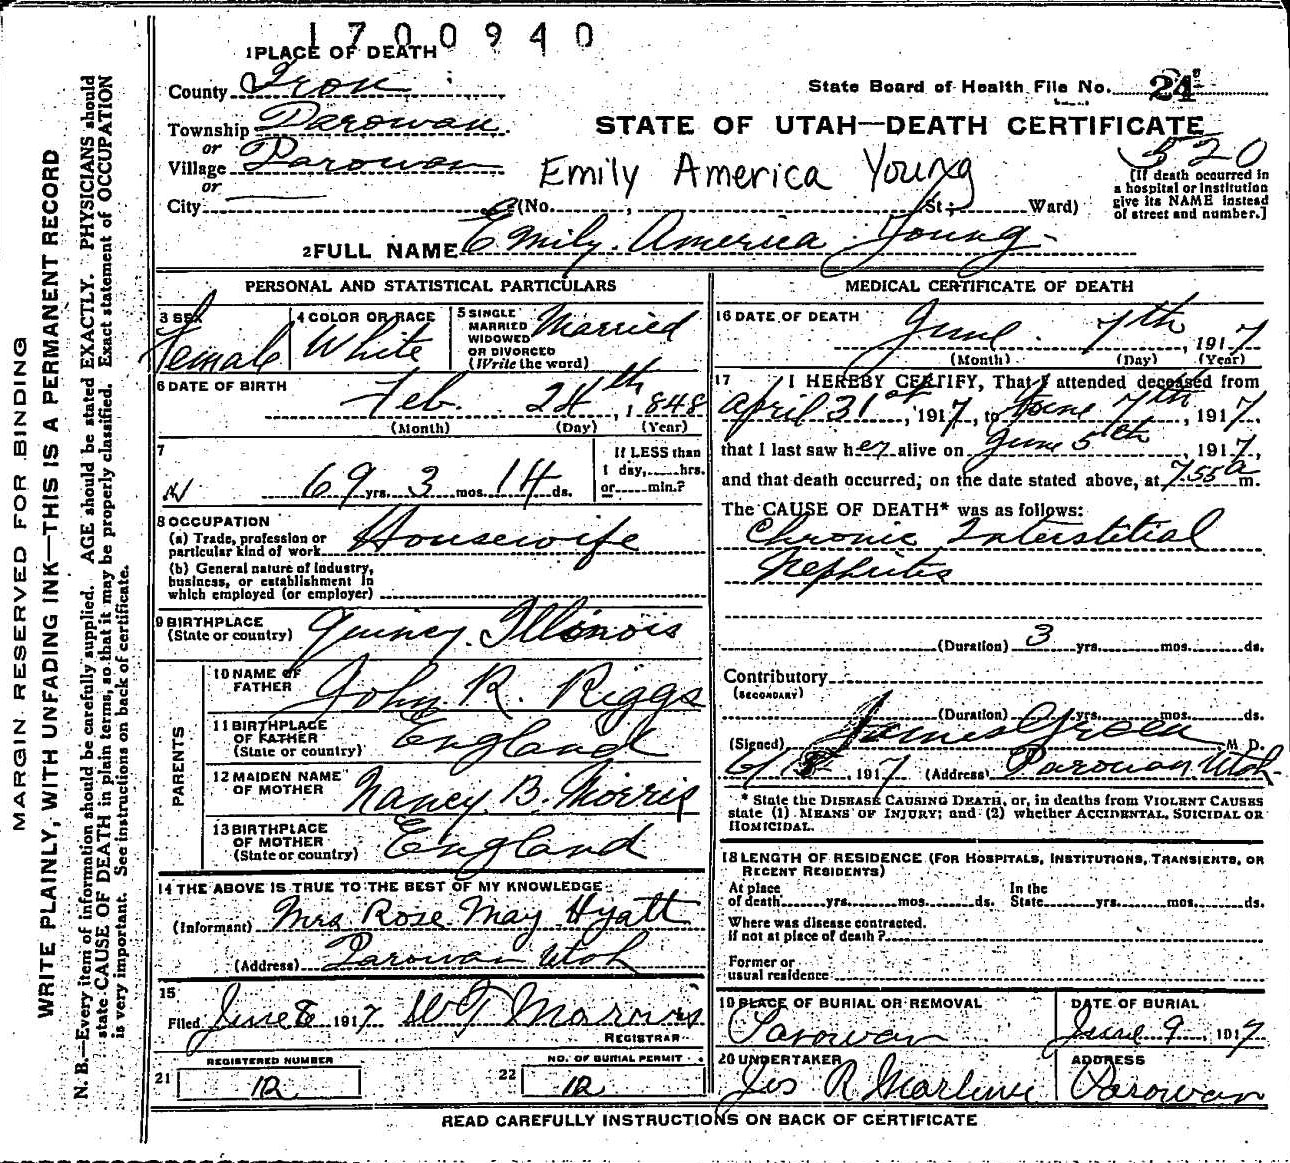 1700940
1 PLACE OF DEATH
County Iron
State Board of Health File No. 24
Township Parowan
or
STATE OF UTAH—DEATH CERTIFICATE
520
Village Parowan
or
Emily America Young
[If death occurred in
a hospital or institution
give its NAME instead
of street and number.]
City (No. , St; Ward)
2 FULL NAME Emily America Young
PERSONAL AND STATISTICAL PARTICULARS
3 SEX Female
4 COLOR OR RACE White
5 SINGLE
MARRIED
WIDOWED
OR DIVORCED
(Write the word) Married
6 DATE OF BIRTH
Feb. 24th, 1848
(Month) (Day) (Year)
7
69 yrs. 3 mos. 14 ds.
If LESS than
1 day, hrs.
or min.?
8 OCCUPATION
(a) Trade, profession or
particular kind of work Housewife
(b) General nature of industry,
business, or establishment in
which employed (or employer)
9 BIRTHPLACE
(State or country) Quincy Illinois
PARENTS
10 NAME OF
FATHER John R. Riggs
11 BIRTHPLACE
OF FATHER
(State or country) England
12 MAIDEN NAME
OF MOTHER Nancy B. Morris
13 BIRTHPLACE
OF MOTHER
(State or country) England
14 THE ABOVE IS TRUE TO THE BEST OF MY KNOWLEDGE
(Informant) Mrs Rose May Hyatt
(Address) Parowan Utah
15
Filed June 8 1917 W
REGISTRAR
REGISTERED NUMBER
21 12
NO. OF BURIAL PERMIT
22 12
MEDICAL CERTIFICATE OF DEATH
16 DATE OF DEATH
June 7th, 1917
(Month) (Day) (Year)
17 I HEREBY CERTIFY, That I attended deceased from
April 31st, 1917, to June 7th, 1917,
that I last saw her alive on June 5th, 1917,
and that death occurred, on the date stated above, at 7.55 a m.
The CAUSE OF DEATH* was as follows:
Chronic Interstitial
Nephritis
(Duration) 3 yrs. mos. ds.
Contributory
(SECONDARY)
(Duration) yrs. mos. ds.
(Signed) James Green M D.
6/8, 1917 (Address) Parowan Utah
* State the DISEASE CAUSING DEATH, or, in deaths from VIOLENT CAUSES
state (1) MEANS OF INJURY; and (2) whether ACCIDENTAL, SUICIDAL OR
HOMICIDAL.
18 LENGTH OF RESIDENCE (FOR HOSPITALS, INSTITUTIONS, TRANSIENTS, OR
RECENT RESIDENTS)
At place
of death yrs. mos. ds.
In the
State yrs. mos. ds.
Where was disease contracted.
if not at place of death?
Former or
usual residence
19 PLACE OF BURIAL OR REMOVAL
Parowan
DATE OF BURIAL
June 9 1917
20 UNDERTAKER
Jos R
ADDRESS
Parowan
READ CAREFULLY INSTRUCTIONS ON BACK OF CERTIFICATE
MARGIN RESERVED FOR BINDING
WRITE PLAINLY, WITH UNFADING INK—THIS IS A PERMANENT RECORD
N. B.—Every item of information should be carefully supplied. AGE should be stated EXACTLY. PHYSICIANS should
state CAUSE OF DEATH in plain terms, so that it may be properly classified. Exact statement of OCCUPATION
is very important. See instructions on back of certificate.